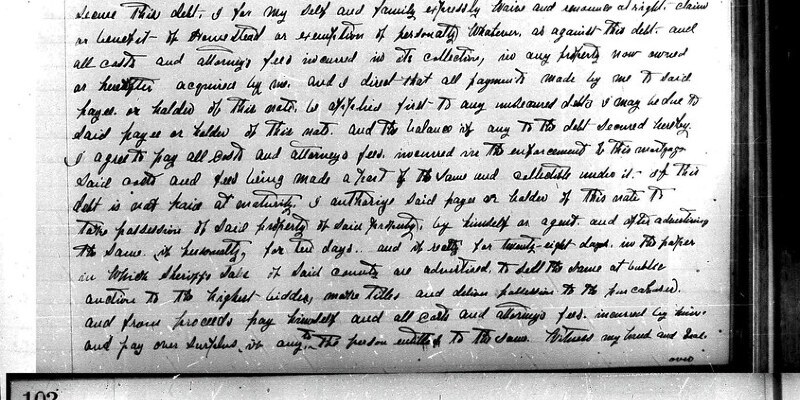 secure this debt. I for my self and family expressly waive and renounce all right claim
or benefit of Homestead or exemption of personalty whatever, as against this debt. and
all costs and attorneys fees incurred in its collection, in any property now owned
or hereafter acquired by me. And I direct that all payments made by me to said
payee. or holder of this note, be applied first to any unsecured debts I may be due to
said payee or holder of this note. and the balance if any to the debt secured hereby.
I agree to pay all costs and attorneys fees. incurred in the enforcement to this mortgage
said costs and fees being made a part of the same and collectible under it. If this
debt is not paid at maturity, I authorize said payee or holder of this note to
take possession of said property of said property, by himself or agent. and after advertising
the same. if personalty, for ten days.. and if realty for twenty-eight days. in the paper
in which Sheriffs Sale of said county are advertised. to sell the same at public
auction to the highest bidder, make titles and deliver possession to the purchaser.
and from proceeds pay himself and all costs and attorneys fees. incurred by him.
and pay over surplus, if any, to the person entitled to the same. Witness my hand and Seal.
over
103